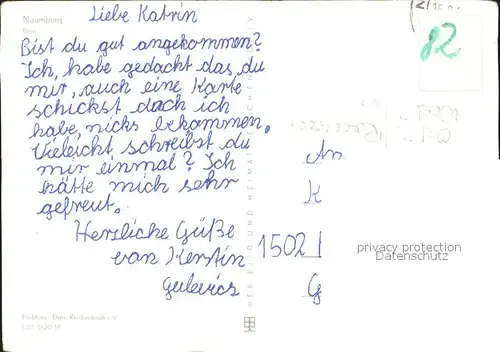 Liebe Katrin
Naumburg
Dom
Bist du gut angekommen?
Ich, habe gedacht das du
mir, auch eine Karte
schickst dach ich
habe, nichs bekommen.
Vieleicht schreibst du
mir einmal? Ich
hätte mich sehr
gefreut.
Herzliche Güße
van Kerstin
82
An
K
1502 1
G
privacy protection
Datenschutz
VEB BILD UND HEIMAT REICHENBACH